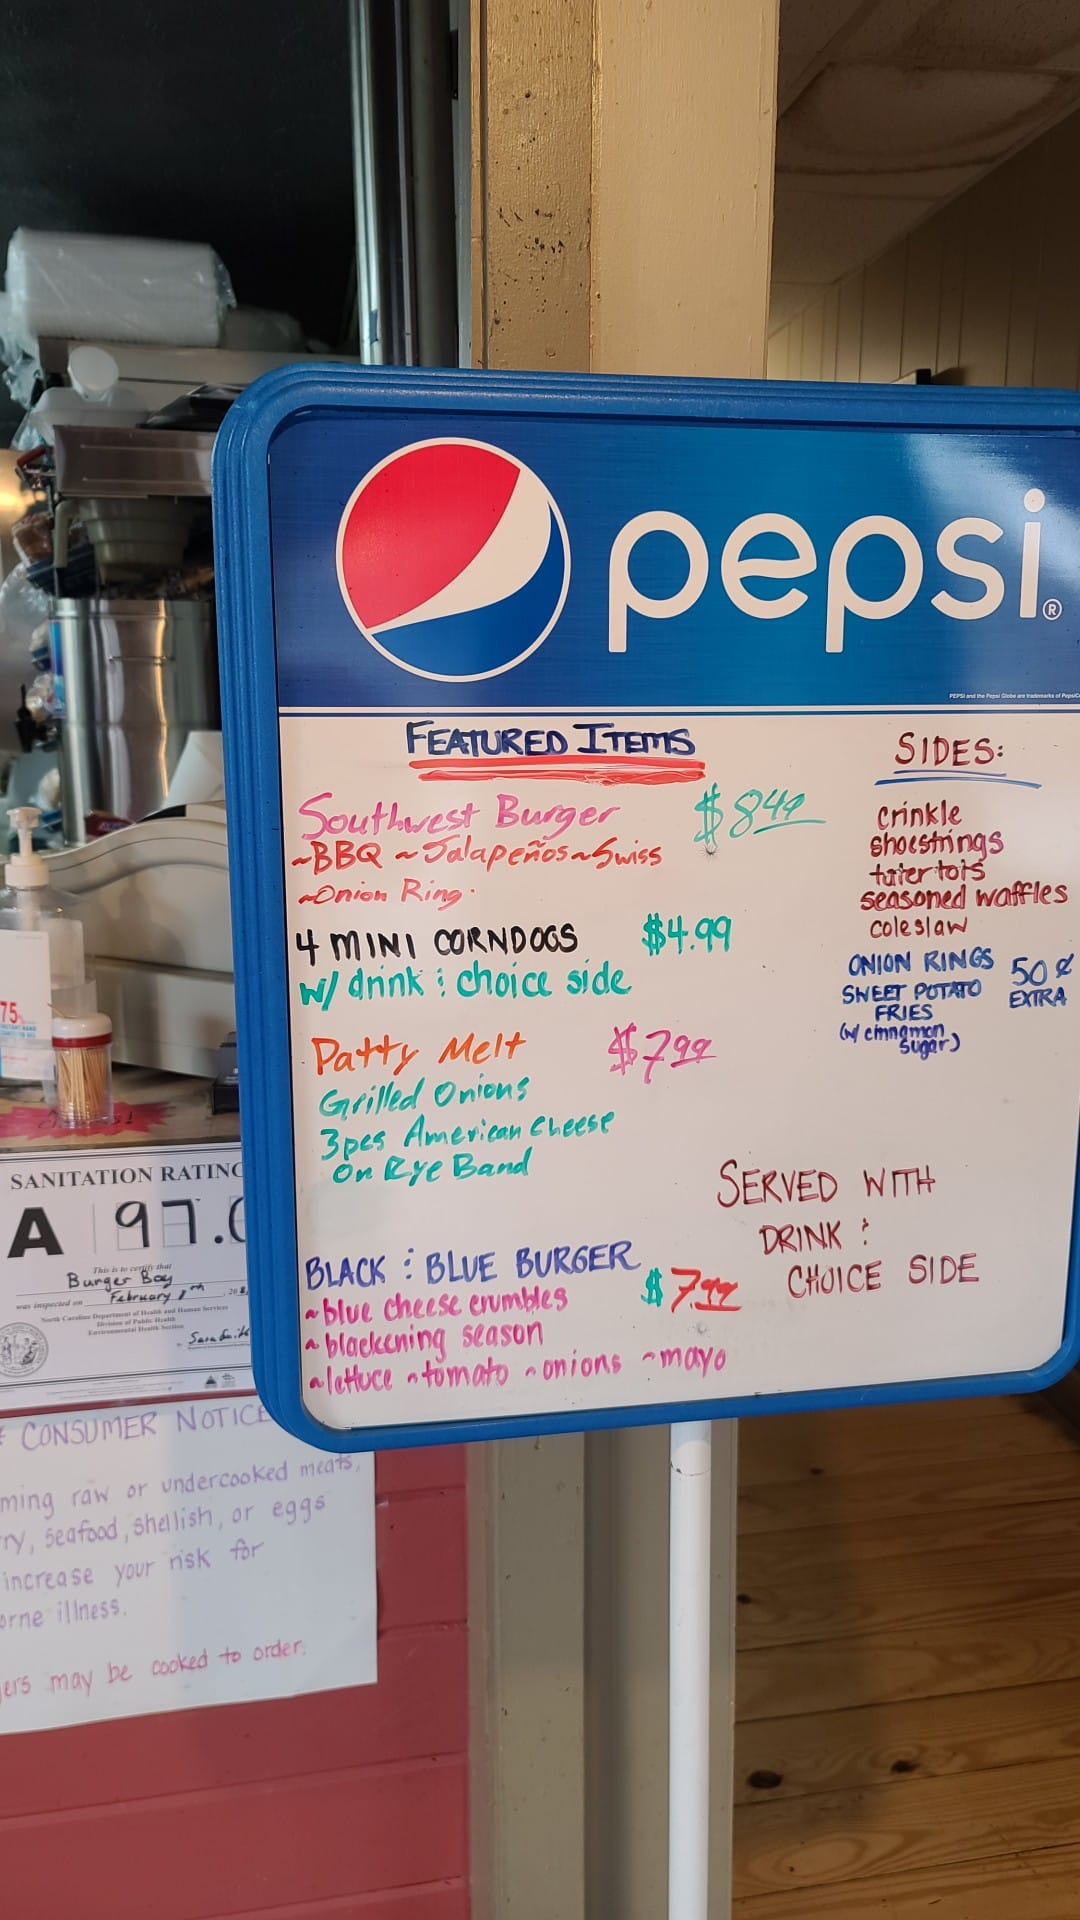 pepsi®
PEPSI and the Pepsi Globe are trademarks of PepsiC
FEATURED ITEMS
Southwest Burger $8.49
~BBQ ~Jalapeños~Swiss
~Onion Ring
4 MINI CORNDOGS $4.99
w/ drink & choice side
Patty Melt $7.99
Grilled Onions
3pcs American Cheese
On Rye Band
BLACK & BLUE BURGER
$7.99
~blue cheese crumbles
~blackening season
~lettuce ~tomato ~onions ~mayo
SIDES:
crinkle
shoestrings
tater tots
seasoned waffles
coleslaw
ONION RINGS
SWEET POTATO
FRIES
(w/ cinnamon
sugar)
50¢
EXTRA
SERVED WITH
DRINK &
CHOICE SIDE
75
SANITATION RATING
A 97.
This is to certify that
Burger Boy
was inspected on February 8th, 20
North Carolina Department of Health and Human Services
Division of Public Health
Environmental Health Section
CONSUMER NOTICE
ming raw or undercooked meats,
ry, seafood, shellish, or eggs
increase your risk for
orne illness.
ers may be cooked to order.